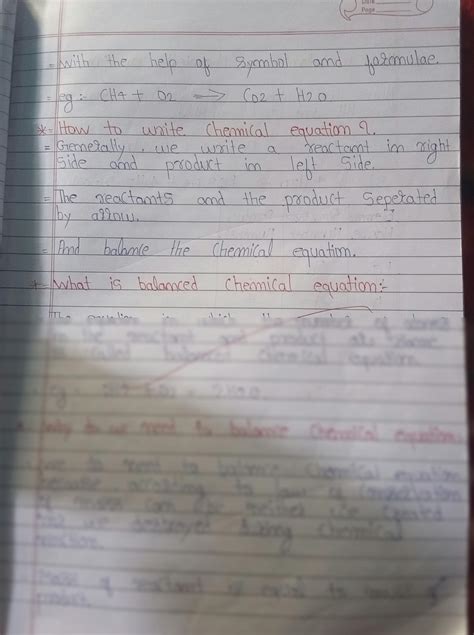 Date
Page
= With the help of symbol and formulae.
= eg:- CH4 + O2 → CO2 + H2O
*= How to write chemical equation?
= Generally, we write a reactant in right
side and product in left side.
= The reactants and the product seperated
by arrow.
= And balance the chemical equation.
What is balanced chemical equation:-
The equation in which the number of atoms
in the reactant and product are same
called balanced chemical equation
eg:
why do we need to balance chemical equation
we do need to balance chemical equation
because according to law of conservation
of mass can be neither be created
destroyed during chemical
reaction.
mass of reactant is equal to mass of
product.